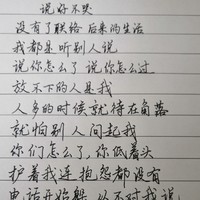 说好不哭
没有了联络 后来的生活
我都是听别人说
说你怎么了 说你怎么过
放不下的人是我
人多的时候就待在角落
就怕别人问起我
你们怎么了，你低着头
护着我连抱怨都没有
电话开始躲 从不对我说